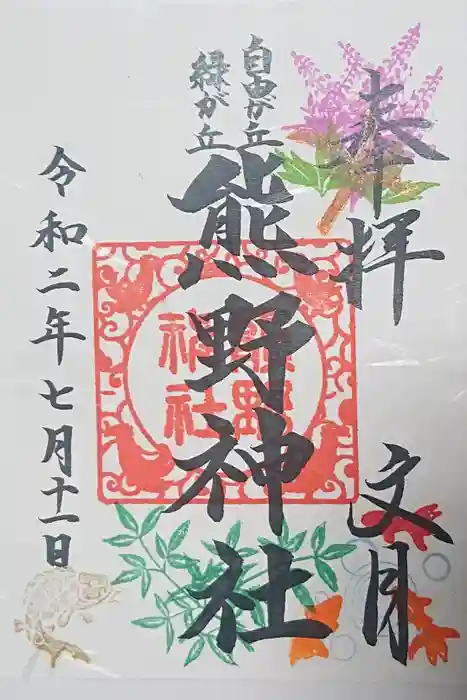 奉拝
文月
自由が丘
緑が丘
熊野神社
熊野
神社
令和二年七月十一日